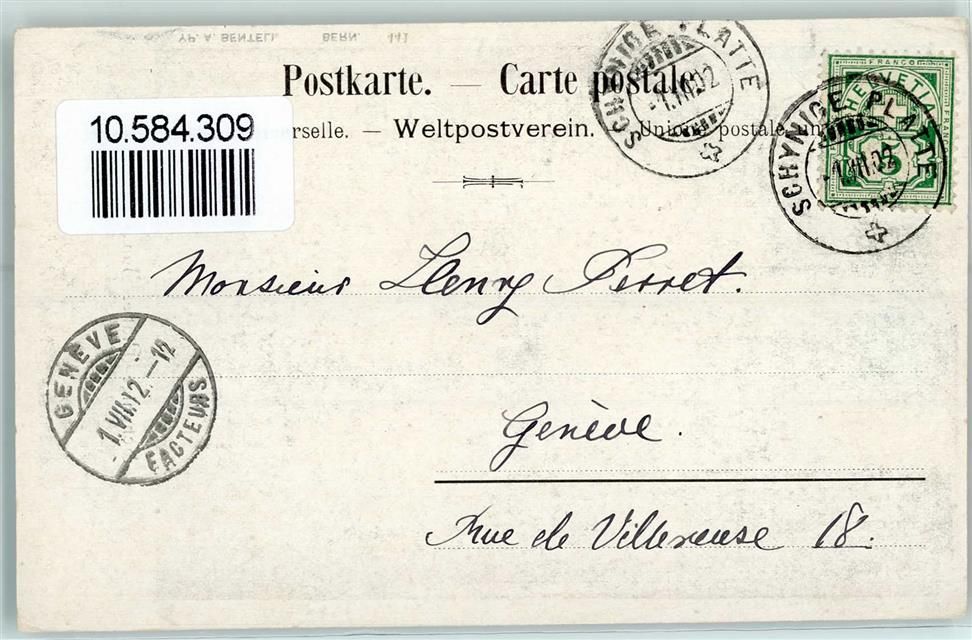 YP. A. BENTELI. BERN. 141
Postkarte. — Carte postale.
rselle. — Weltpostverein. — Union postale un
10.584.309
SCHYNIGE PLATTE
1.VII.02
HELVETIA
FRANCO
SCHYNIGE PLATTE
1.VII.02
Monsieur Henry Perret.
GENÈVE
1.VII.12.-12
FACTEURS
Genève.
Rue de Villereuse 18.